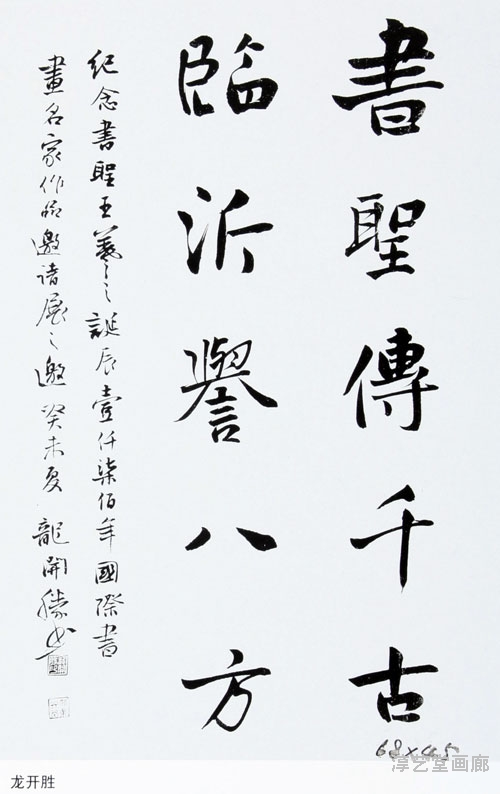 書聖傳千古
臨沂譽八方
紀念書聖王羲之誕辰壹仟柒佰年國際書
畫名家作品邀请展之邀 癸未夏 龍開勝書
68×45
淳艺堂画廊
龙开胜